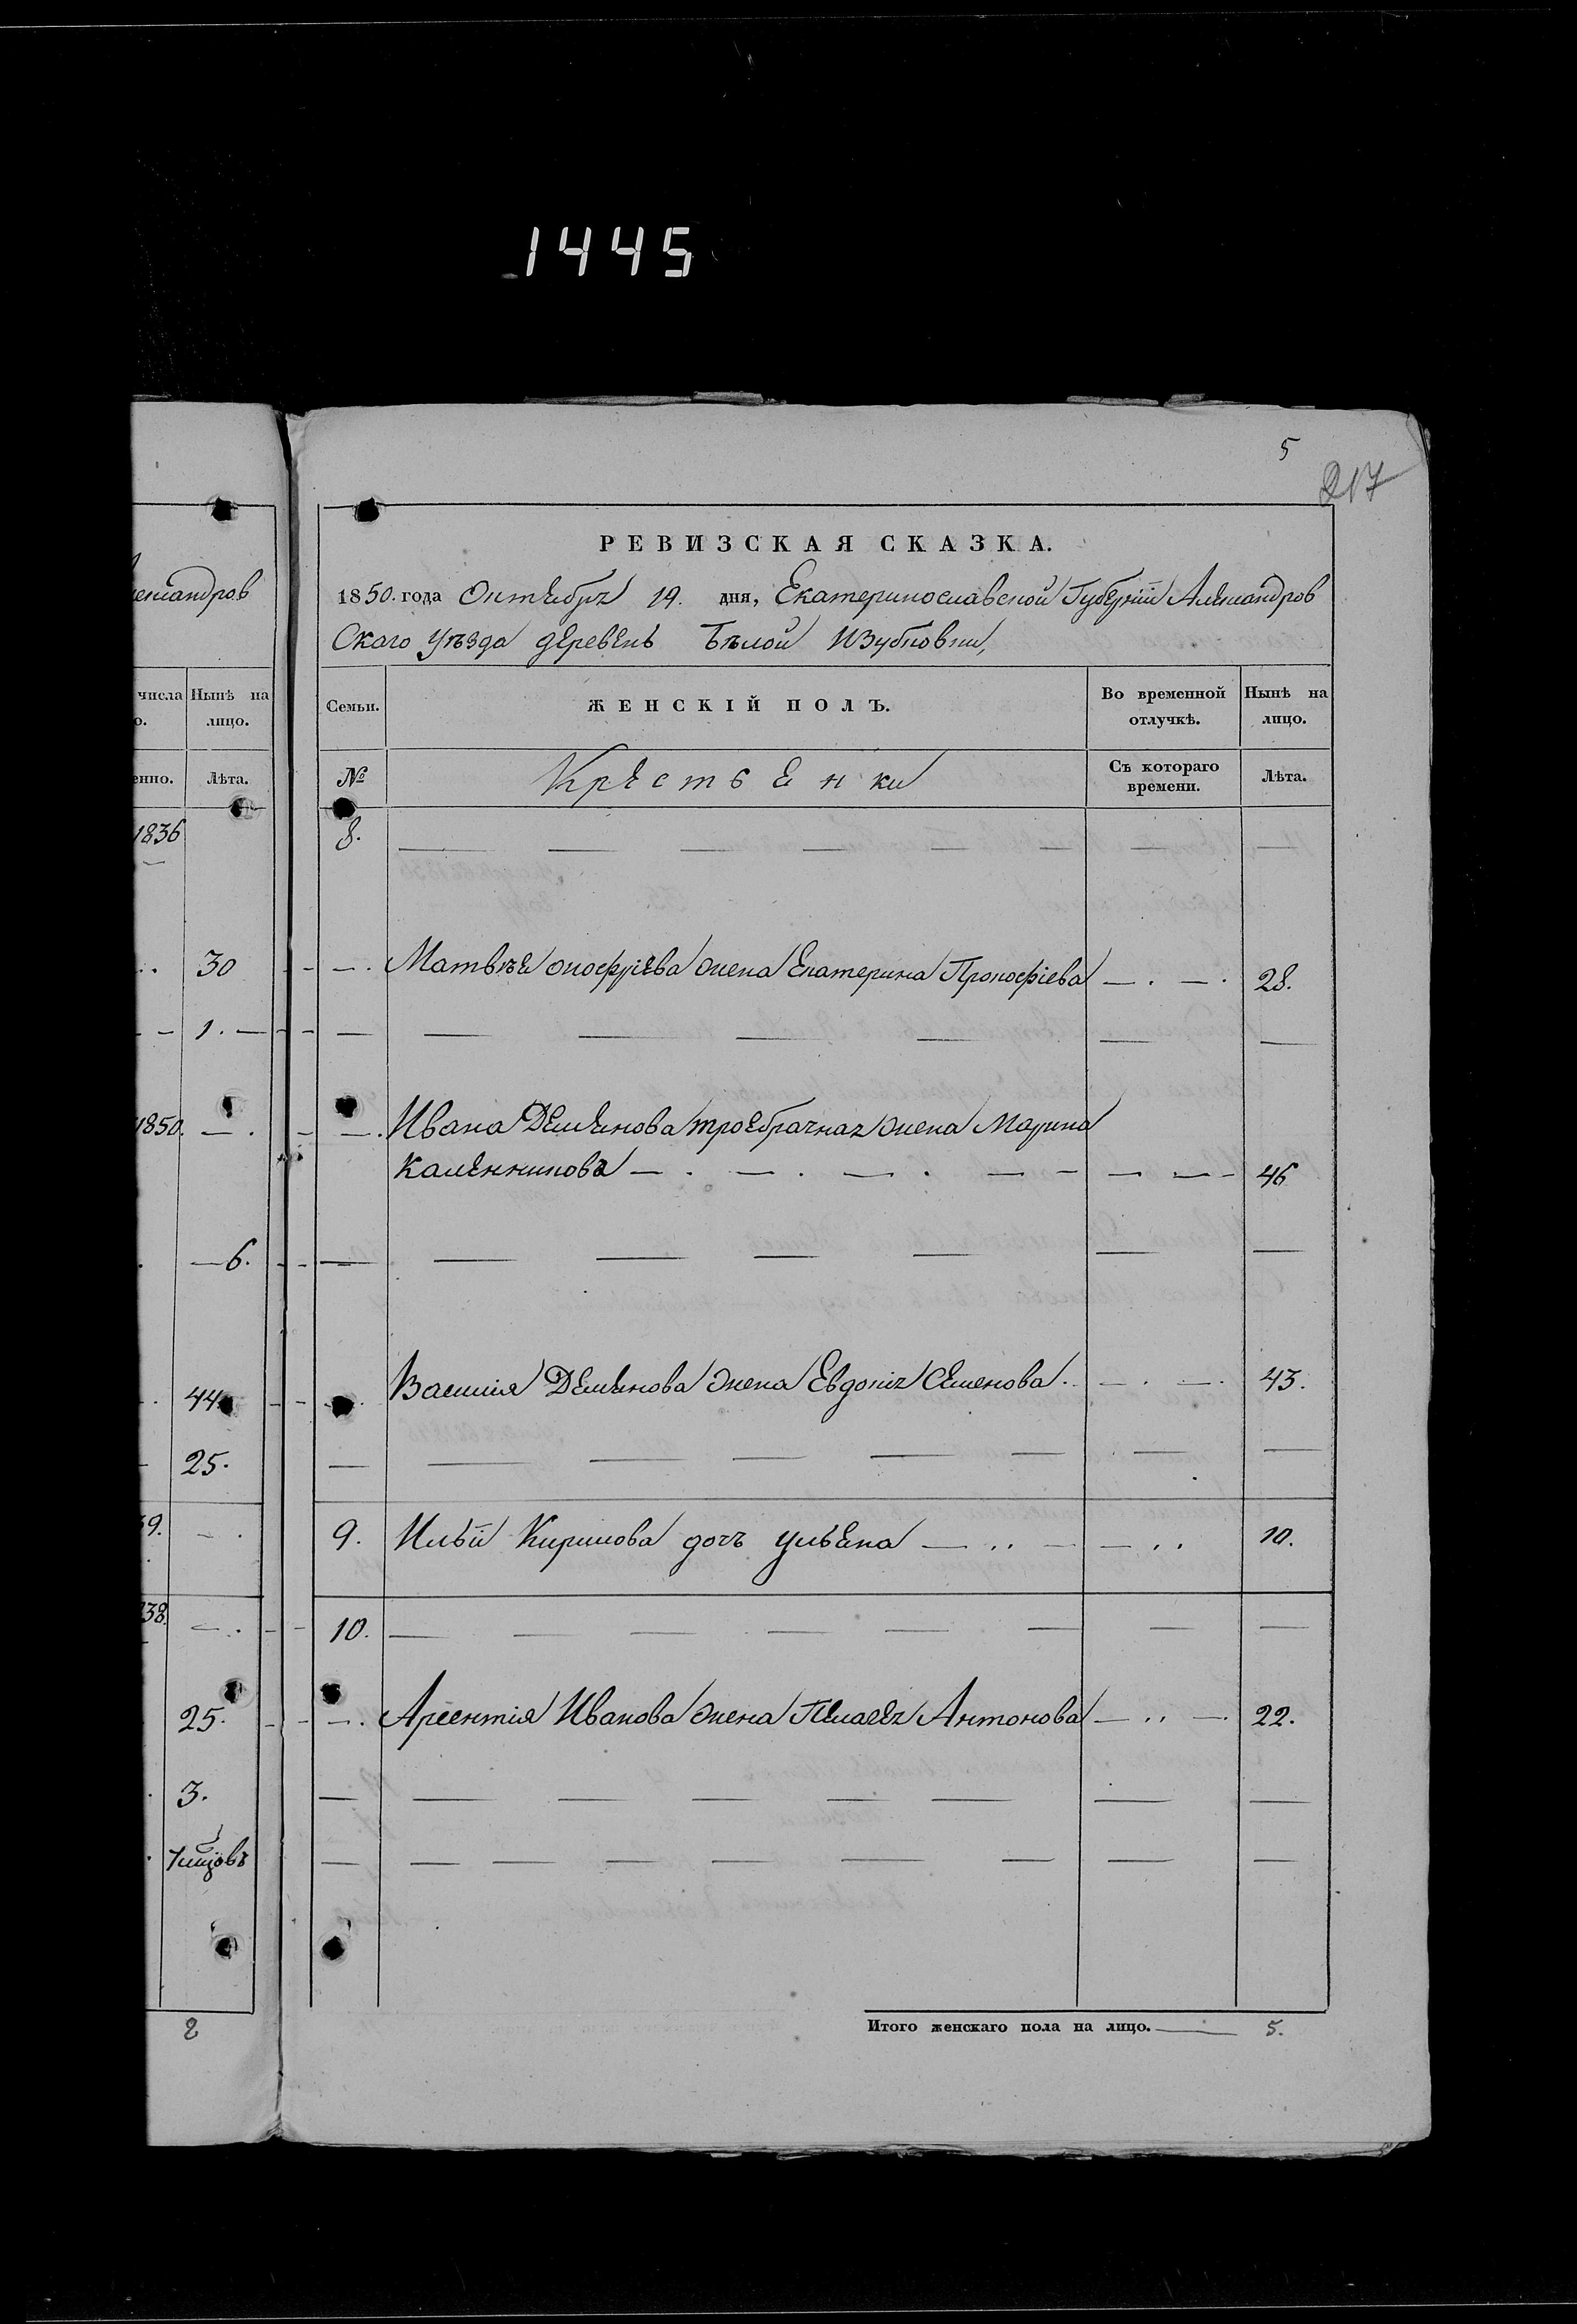 1445
5
217
лександров
числа Нынѣ на
о. лицо.
енно. Лѣта.
1836
30
1.
1850.
6.
44
25.
39.
838.
25.
3.
2
РЕВИЗСКАЯ СКАЗКА.
1850. года Октября 19. дня, Екатеринославской Губерніи Александров
Скаго уѣзда деревень Бѣлой и Зубковки,
Семьи. ЖЕНСКІЙ ПОЛЪ. Во временной отлучкѣ. Нынѣ на лицо.
№ Крестьенки Съ котораго времени. Лѣта.
8. — — — — — — — —
— . Матвѣе онофріева жена Екатерина Прокофіева — . — . 28.
— — — — — — —
— . Ивана Демьянова троебрачная жена Марина
Каленникова — . — . — . — — — — 46
— — — — — — —
Василія Демьянова жена Евдокия Семенова . — . — . 43.
— — — — — — — —
9. Ильи Кирилова дочь ульена — .. — — .. 10.
10. — — — — — — — —
— . Арсентія Иванова жена Пелагея Антонова — .. — . 22.
— — — — — — — —
— — — — — — — — —
Итого женскаго пола на лицо. — 5.